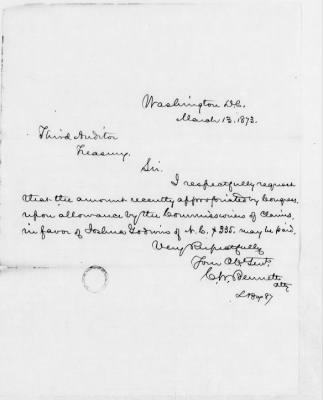 Washington D.C.
March 13. 1873.
Third Auditor
Treasury.
Sir.
I respectfully request
that the amount recently appropriated by Congress
upon allowance by the Commissioners of Claims,
in favor of Joshua Godwin of N.C. $335. may be paid.
Very Respectfully
Your Obt Servt.
C.W. Bennett
Atty
L. Box 87